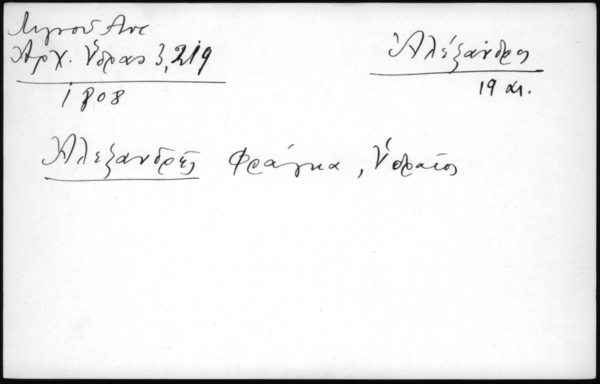 Λιγνοῦ Ἀντ
Ἀρχ. Ὕδρας 3, 219
1808
Ἀλέξανδρῆς
19 αι.
Ἀλεξανδρῆς Φράγκα, Ὑδραῖος